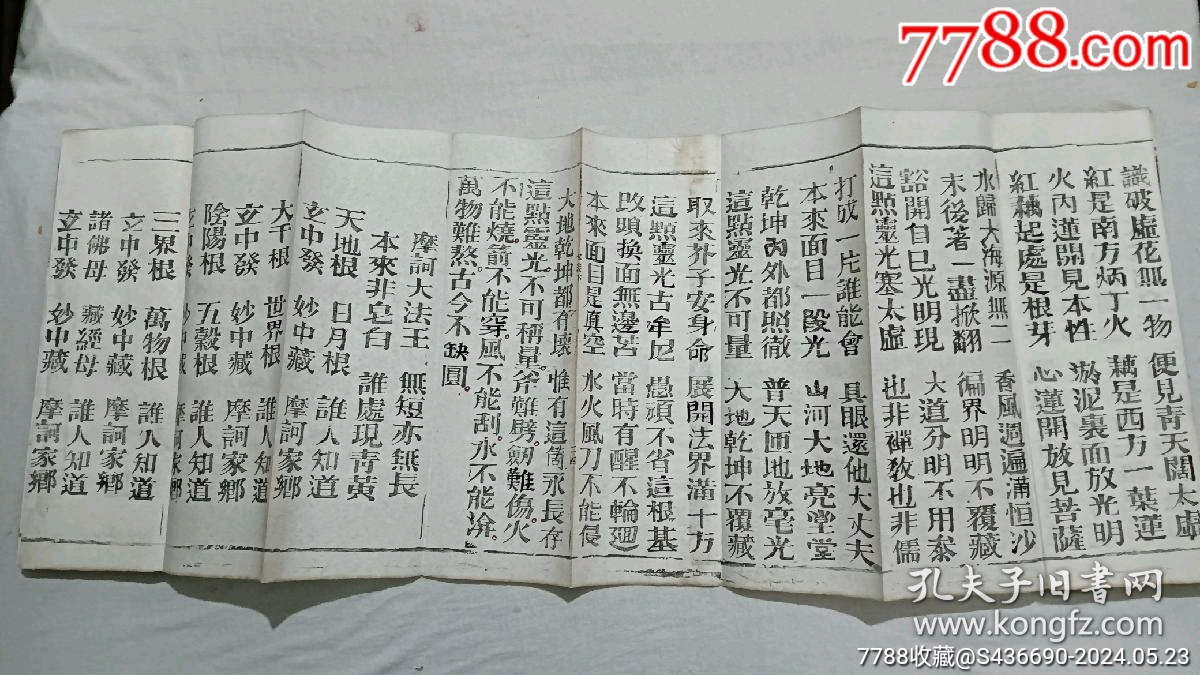 7788.com
識破虛花無一物 便見青天闊太虛
紅是南方炳丁火 藕是西方一葉蓮
火內蓮開見本性 淤泥裏面放光明
紅藕起處是根芽 心蓮開放見菩薩
水歸大海源無二 香風週遍滿恒沙
末後著一盡掀翻 徧界明明不覆藏
豁開自己光明現 大道分明不用叅
這點靈光塞太虛 也非禪教也非儒
打成一片誰能會 具眼還他大丈夫
本來面目一段光 山河大地亮堂堂
乾坤內外都照徹 普天匝地放毫光
這點靈光不可量 大地乾坤不覆藏
取來芥子安身命 展開法界滿十方
這點靈光古牟尼 愚頑不省這根基
改頭換面無邊苦 當時有醒不輪廻
本來面目是真空 水火風刀不能侵
大地乾坤都有壞 惟有這箇永長存
這點靈光不可稱量。斧難劈。劒難傷。火
不能燒。箭不能穿。風不能刮。水不能渰。
萬物難熬。古今不缺圓。
摩訶大法王 無短亦無長
本來非皂白 誰處現青黃
天地根 日月根
玄中發 妙中藏 誰人知道 摩訶家鄉
大千根 世界根
玄中發 妙中藏 誰人知道 摩訶家鄉
陰陽根 五穀根
玄中發 妙中藏 誰人知道 摩訶家鄉
三界根 萬物根
玄中發 妙中藏 誰人知道 摩訶家鄉
諸佛母 藏經母
玄中發 妙中藏 誰人知道 摩訶家鄉
孔夫子旧书网
www.kongfz.com
7788收藏@S436690-2024.05.23